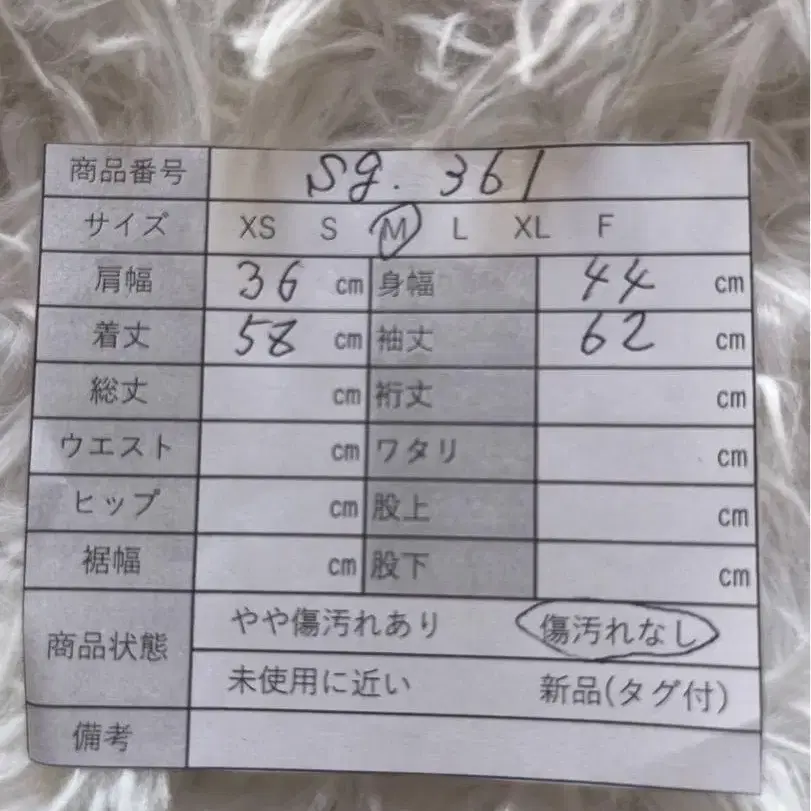 商品番号 sg. 361
サイズ XS S M L XL F
肩幅 36 cm 身幅 44 cm
着丈 58 cm 袖丈 62 cm
総丈 cm 裄丈 cm
ウエスト cm ワタリ cm
ヒップ cm 股上 cm
裾幅 cm 股下 cm
商品状態 やや傷汚れあり 傷汚れなし
未使用に近い 新品(タグ付)
備考